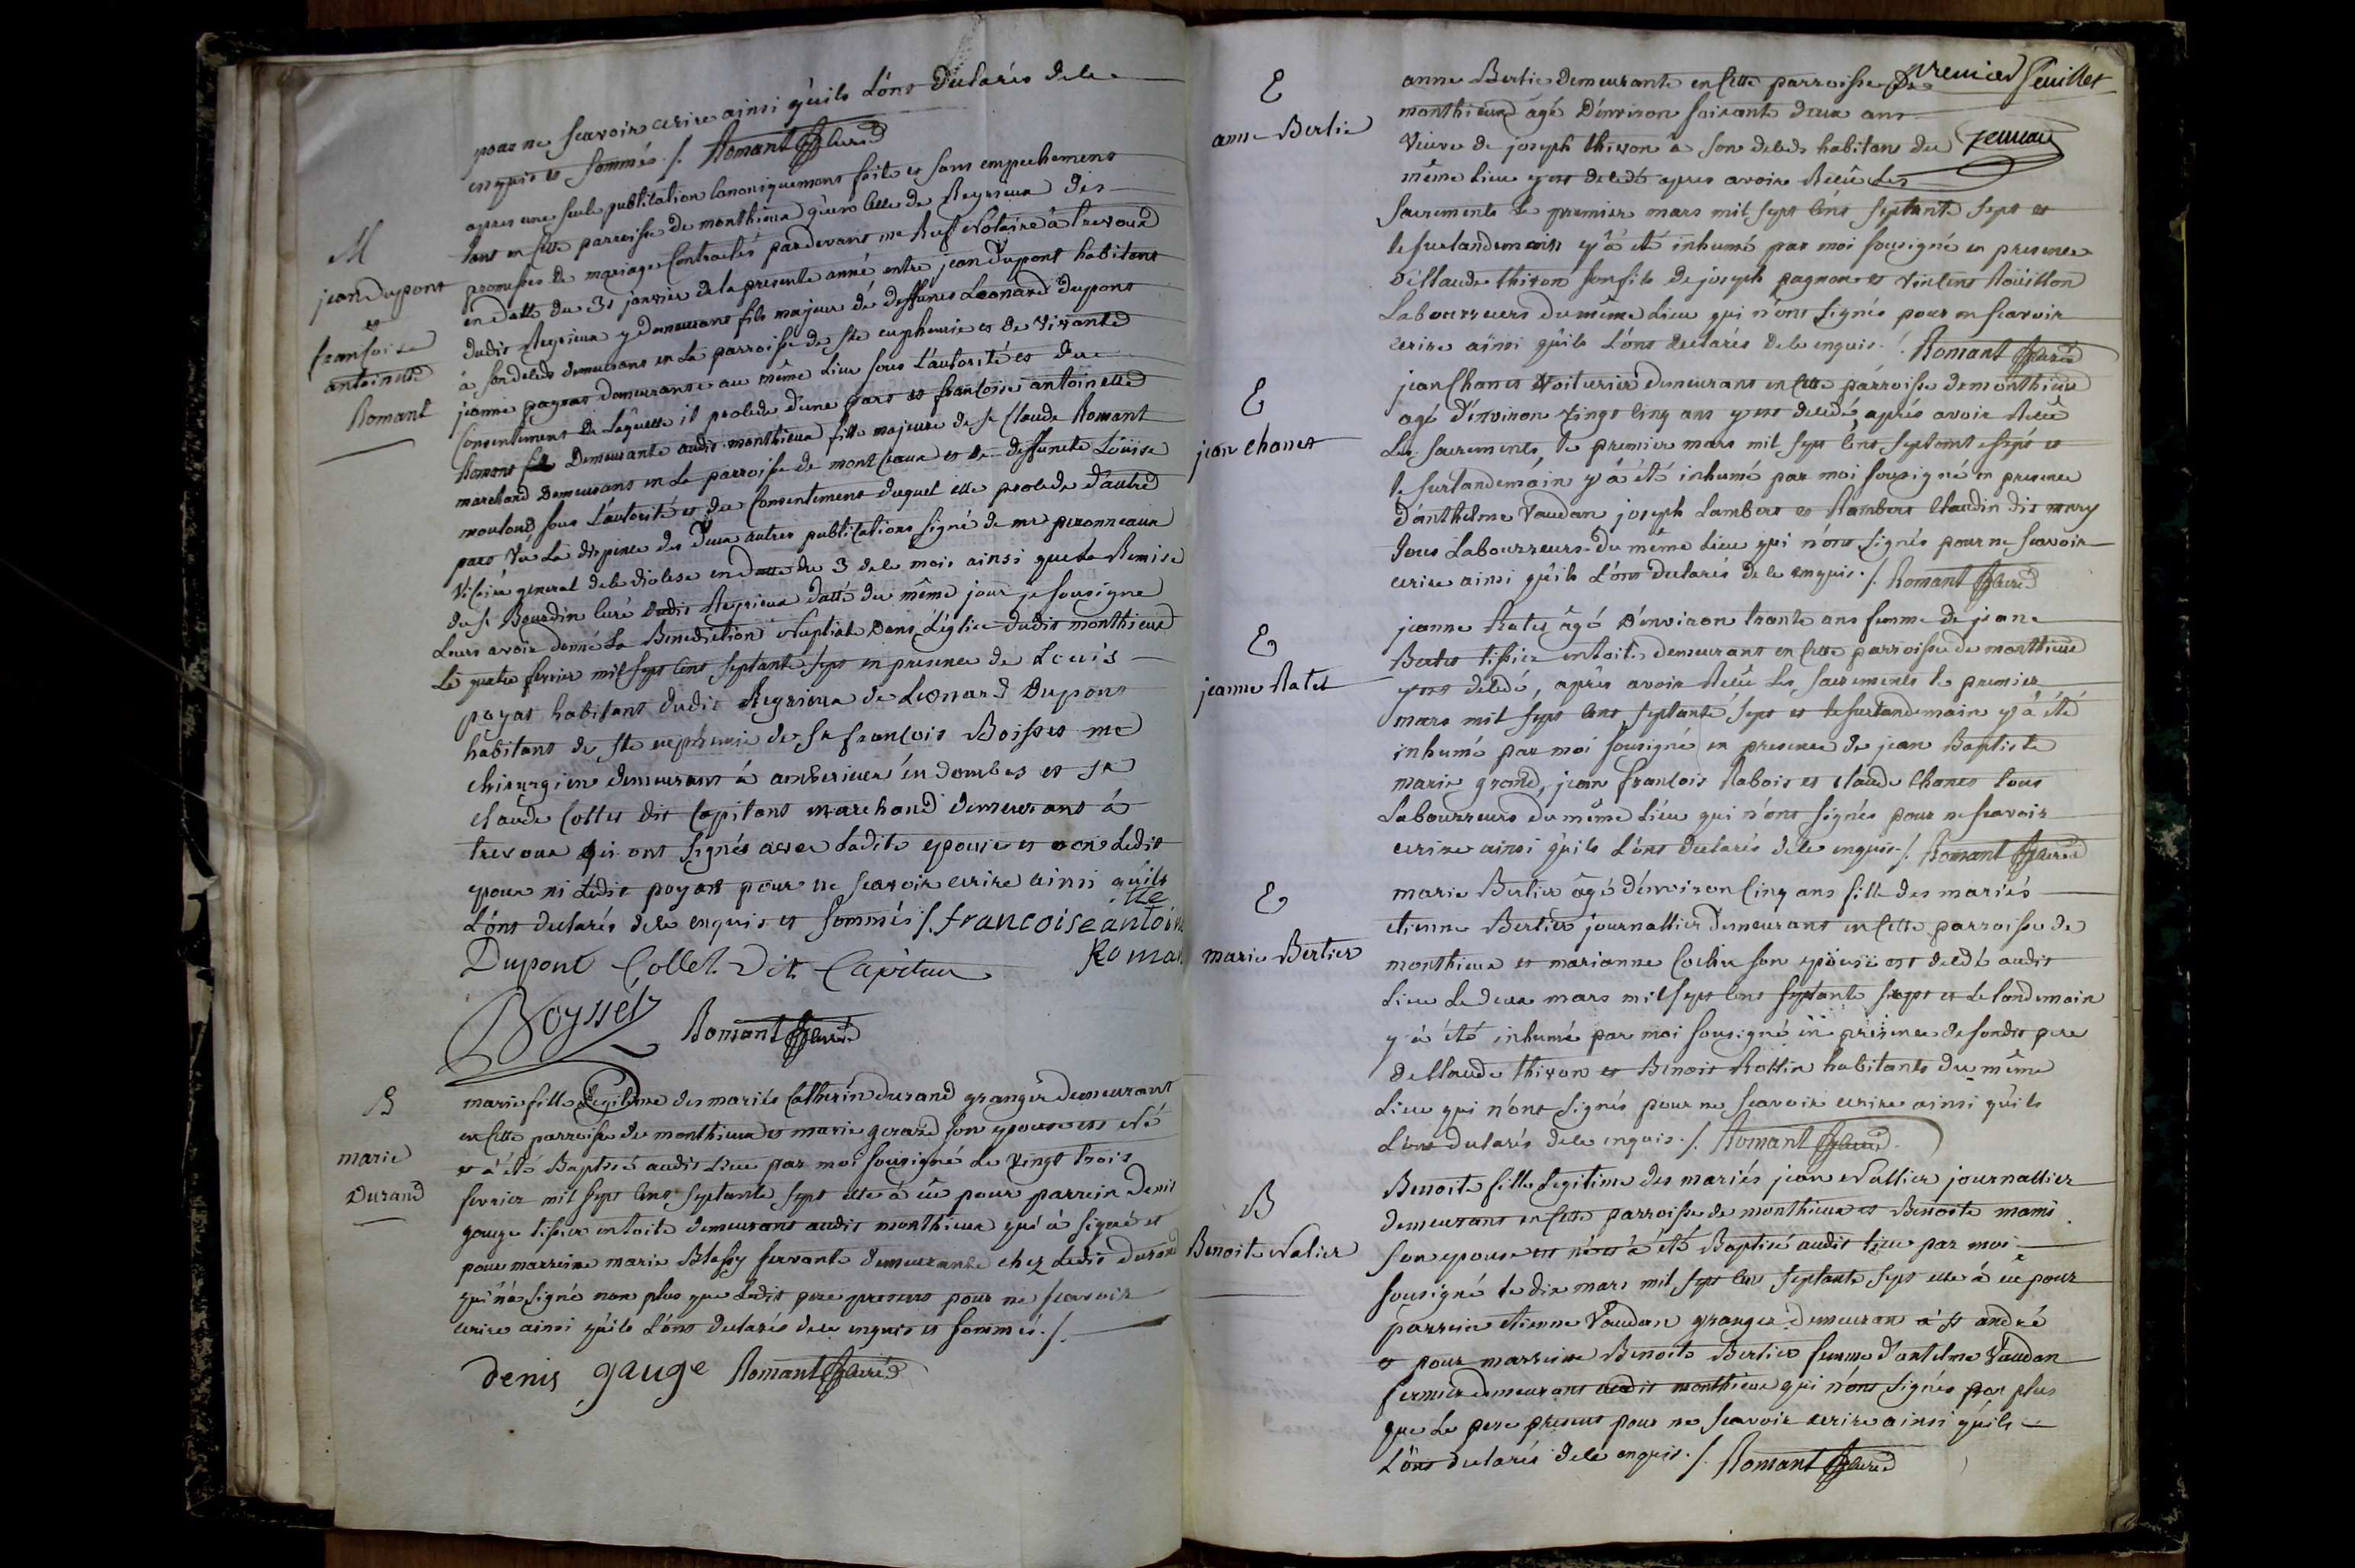 pour ne scavoir ecrire ainsi qu'ils L'ont declarés dele
enquis et sommés ./. Romant curé
M
jean dupont
et
francoise
antoinette
Romant
apres une seule publication canoniquement faite et sans empechement
tant en cette parroisse de monthieux qu'en celle de Reyrieux des
promesses de mariage contractés pardevant me Ruf Notaire à trevoux
en datte du 31 janvier de la presente anné entre jean dupont habitant
dudit Reyrieux y demeurant fils majeur de deffunct Leonard dupont
à son deleds demeurant en La parroisse de ste euphemie et de vivante
jeanne payent demeurante au même Lieu sous L'autorité et du
consentement de Laquelle il procede d'une part et francoise antoinette
Romant Demeurante audit monthieux fille majeure de sr Claude Romant
marchand Demeurant en La parroisse de montceaux et de deffuncte Loüise
moulond sous L'autorité et du consentement duquel elle procede d'autre
part Vû La dispence des deux autres publications signé de mr peronneaux
Vicaire general dele diocese en datte du 3 dele mois ainsi que La Remise
du sr Bourdin curé dudit Reyrieux datté du même jour je sousigne
Leurs avoir donné La Benediction Nuptiale Dans L'eglise dudit monthieux
Le quatre fevrier mil sept cens septante sept en presence de Louis
payat habitant dudit Reyrieux de Leonard Dupont
habitant de ste euphemie de sr francois Boisset me
chirurgien demeurant à amberieux en dombes et sr
claude Collet dit Capitant marchand demeurant à
trevoux qui ont signés avec Ladite epouse et non Ledit
epoux ni Ledit payat pour ne scavoir ecrire ainsi qu'ils
L'ont declarés dele enquis et sommés ./. francoise antoinette
Dupont Collet Dit Capitan Roman
Boysset Romant curé
B
marie
Durand
marie fille Legitime des mariés Catherin durand granger demeurant
en cette parroisse de monthieux et marie gerard son epouse est Né
et à été Baptisé audit Lieu par moi sousigné Le vingt trois
fevrier mil sept cens septante sept elle à eû pour parrein denis
gauge tissier en toile demeurant audit monthieux qui à signé et
pour marreine marie Blassy servante demeurante chez Ledit durand
qui n'a signé non plus que Ledit pere present pour ne scavoir
ecrire ainsi qu'ils L'ont declarés dele enquis et sommés ./.
denis gauge Romant curé
premier feuillet
E
anne Bertie
anne Bertie demeurante en cette parroisse de
monthieux agé D'environ soixante deux ans
Veuve de joseph thivon à son deleds habitant du
même Lieu y est deledé apres avoir Reçû Les
sacrements Le premier mars mil sept cens septante sept et
le surlandemain y à été inhumé par moi sousigné en presence
de claude thivon son fils de joseph pagnon et vincent Roüillon
Labourreurs du même Lieu qui n'ont signés pour ne scavoir
ecrire ainsi qu'ils L'ont declarés dele enquis ./. Romant curé
E
jean chanet
jean Chanet Voiturier demeurant en cette parroisse de monthieux
agé d'environ vingt cinq ans y est deledé, aprés avoir Reçû
Les sacrements, le premier mars mil sept cens septant esept et
le surlandemain y à été inhumé par moi sousigné en presence
d'anthelme Vaudan joseph Lambert et Rambert Claudin dit mury
tous Labourreurs du même Lieu qui n'ont signés pour ne scavoir
ecrire ainsi qu'ils L'ont declarés dele enquis ./. Romant curé
E
jeanne Ratet
jeanne Ratet âgé D'environ trante ans femme de jean
Bertet tissier en toile demeurant en cette parroisse de monthieux
y est deledé, aprés avoir Reçû Les sacrements le premier
mars mil sept cens septante sept et le surlandemain y à été
inhumé par moi sousigné en presence de jean Baptiste
marie grand, jean francois Rabois et claude Chanet tous
Labourreurs du même Lieu qui n'ont signés pour ne scavoir
ecrire ainsi qu'ils L'ont declarés dele enquis ./. Romant curé
E
marie Bertier
marie Bertier âgé d'environ cinq ans fille des mariés
etienne Bertier journallier demeurant en cette parroisse de
monthieux et marianne Cochu son epouse est deledé audit
Lieu Le deux mars mil sept cens septante sept et Le landemain
y à été inhumé par moi sousigné en presence de sondit pere
de Claude thivon et Benoit Rottin habitants du même
Lieu qui n'ont signés pour ne scavoir ecrire ainsi qu'ils
L'ont declarés dele enquis ./. Romant curé
B
Benoite Nalier
Benoite fille Legitime des mariés jean Nallier journallier
demeurant en cette parroisse de monthieux et Benoite mami
son epouse est né et à été Baptisé audit Lieu par moi
sousigné le dix mars mil sept cens septante sept elle à eû pour
parrein etienne Vaudan granger demeuran à st andré
et pour marreine Benoite Bertier femme d'antelme Vaudan
fermier demeurant audit monthieux qui n'ont signés par plus
que Le pere present pour ne scavoir ecrire ainsi qu'ils
L'ont declarés dele enquis ./. Romant curé